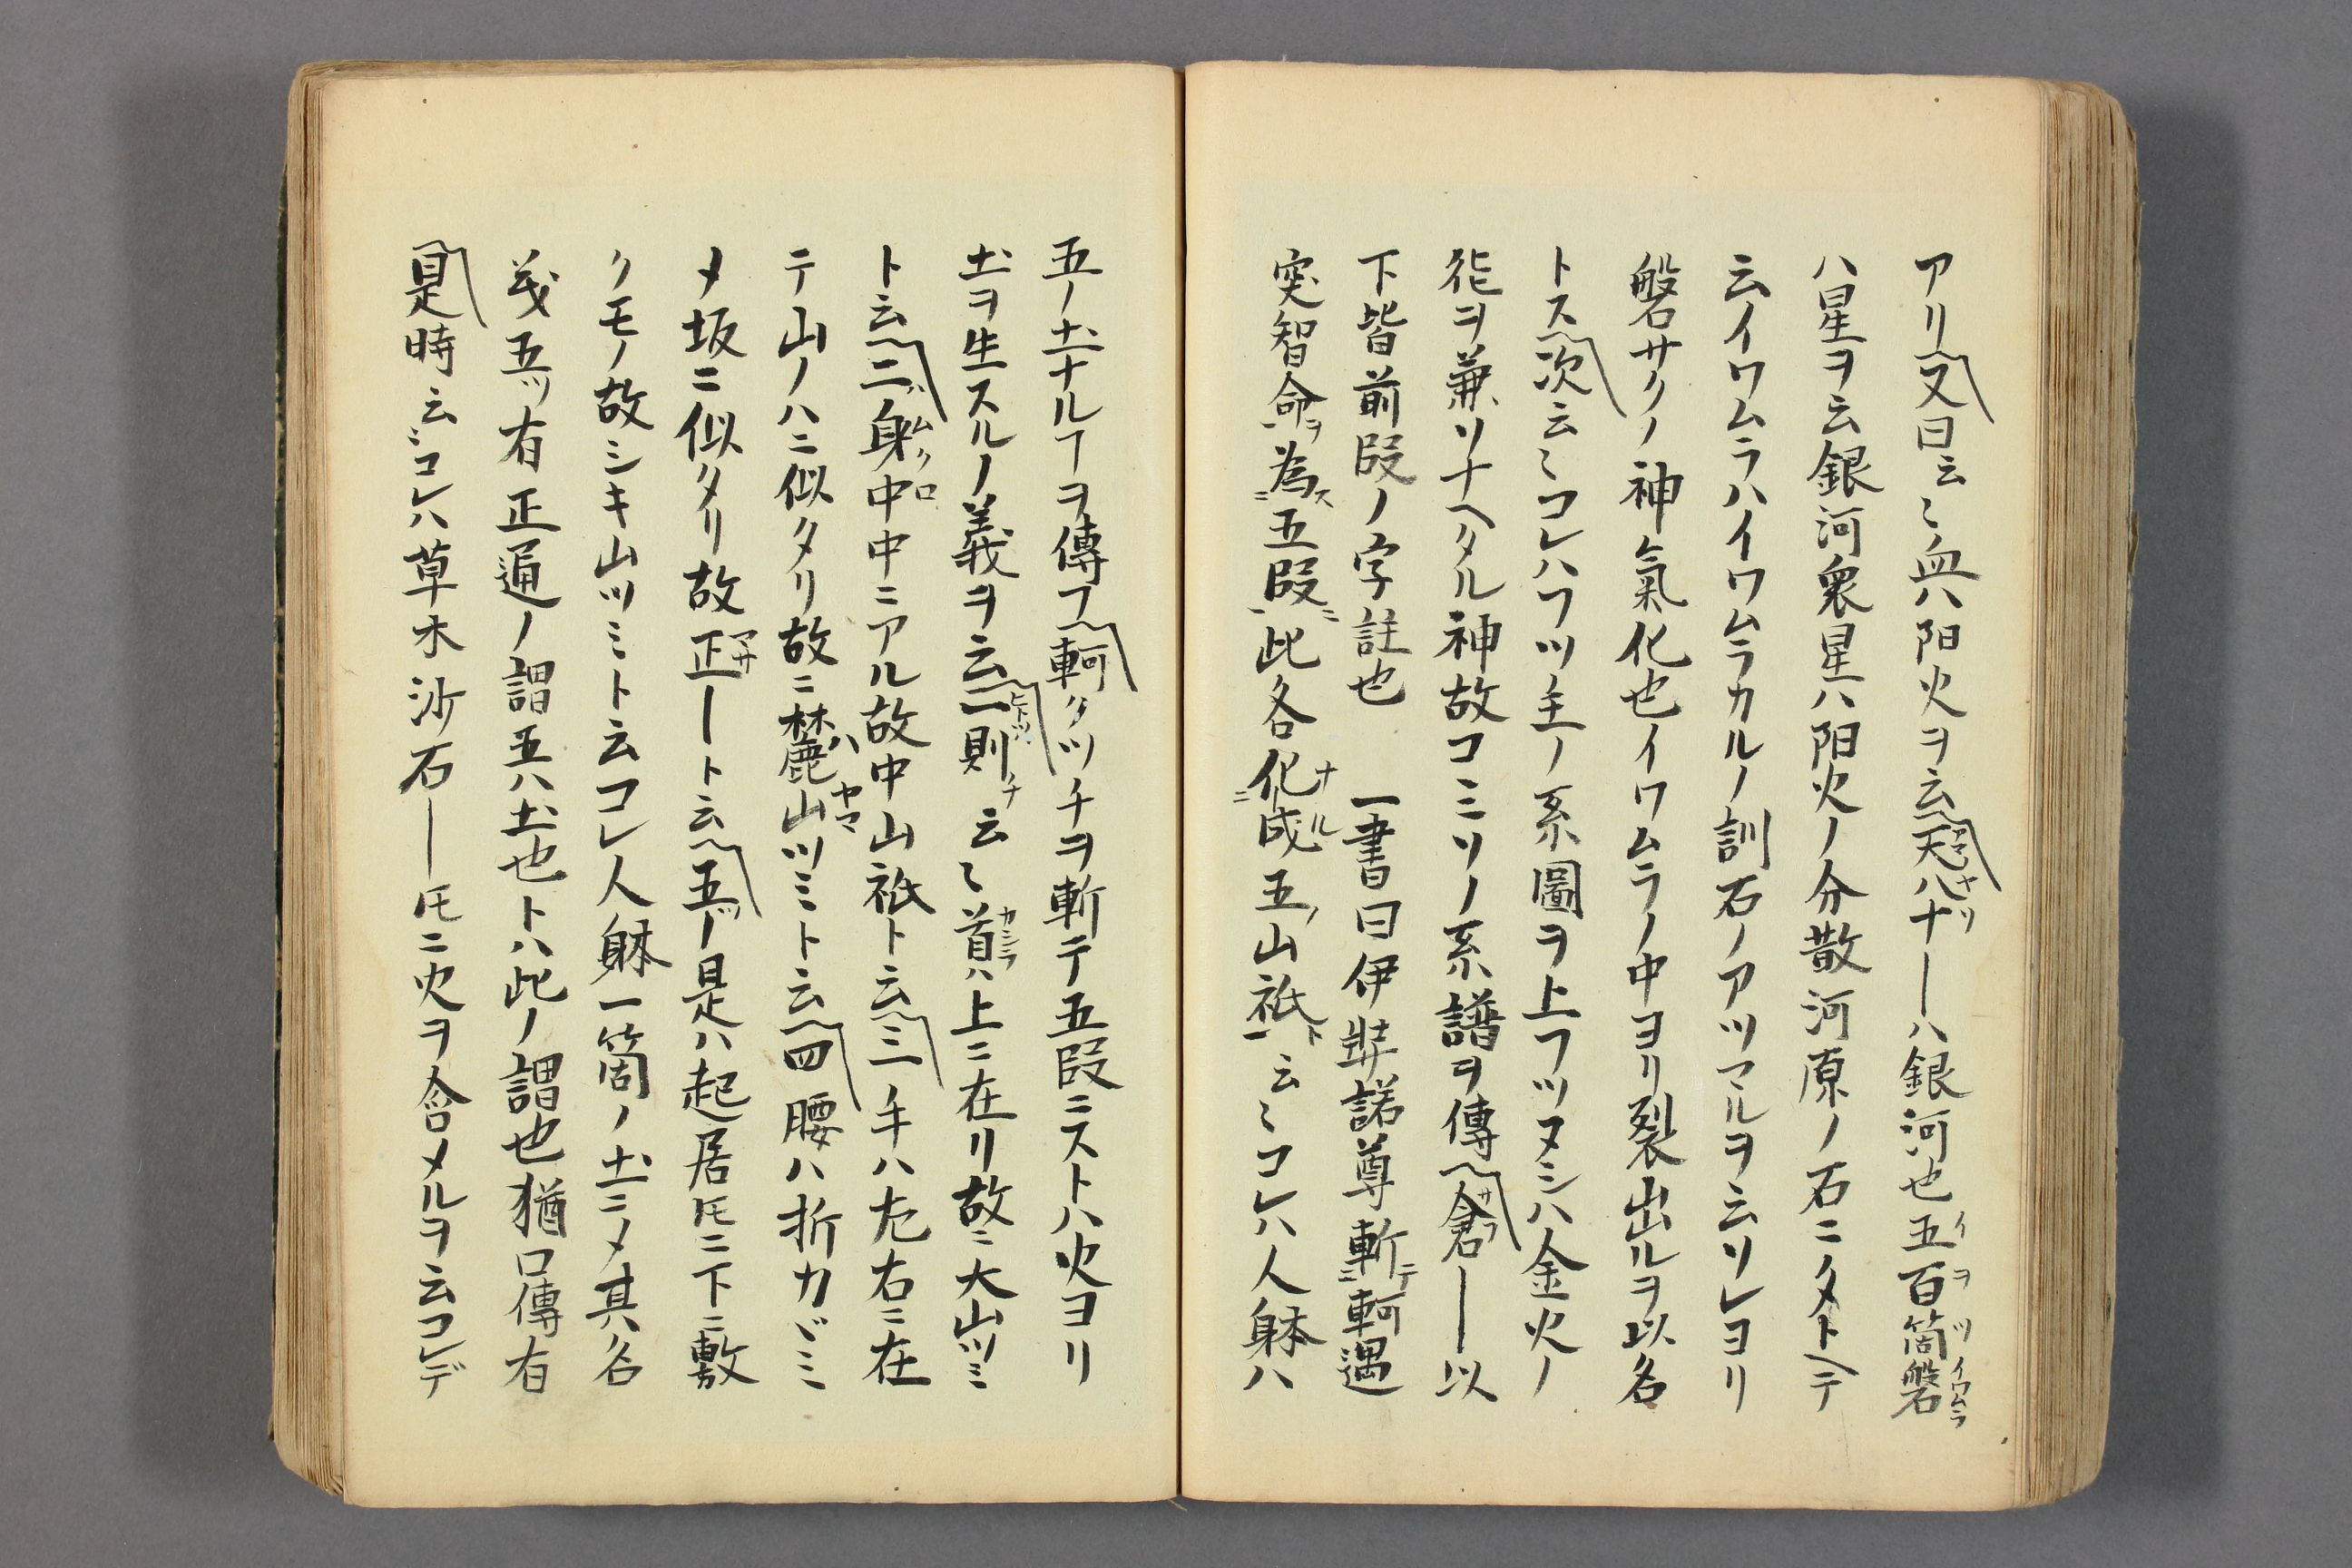 アリ又曰云〻血ハ陽火ヲ云天八十―ハ銀河也五百箇磐
ハ星ヲ云銀河衆星ハ陽火ノ分散河原ノ石ニタトヘテ
云イワムラハイワムラカルノ訓石ノアツマルヲ云ソレヨリ
磐サクノ神氣化也イワムラノ中ヨリ裂出ルヲ以名
トス次云〻コレハフツ主ノ系圖ヲ上フツヌシハ金火ノ
徳ヲ兼ソナヘタル神故コミソノ系譜ヲ傳ヘ倉―以
下皆前段ノ字註也　一書曰伊弉諾尊斬テ軻遇
突智命ヲ為ス五段ニ此各化成ナル五ノ山祇ト云〻コレハ人躰ハ
五ノ土ナルヿヲ傳フ軻クツチヲ斬テ五段ニストハ火ヨリ
土ヲ生スルノ義ヲ云一則チ云〻首ハ上ニ在リ故ニ大山ツミ
ト云二身中中ニアル故中山祇ト云三手ハ左右ニ在
テ山ノハニ似タリ故ニ麓山ツミト云四腰ハ折カヾミ
メ坂ニ似タリ故正―ト云五ノ是ハ起居𪜈ニ下ニ敷
クモノ故シキ山ツミト云コレ人躰一箇ノ土ニメ其名
義五ツ有正通ノ謂五ハ土也トハ此ノ謂也猶口傳有
是時云〻コレハ草木沙石―𪜈ニ火ヲ含メルヲ云コレデ